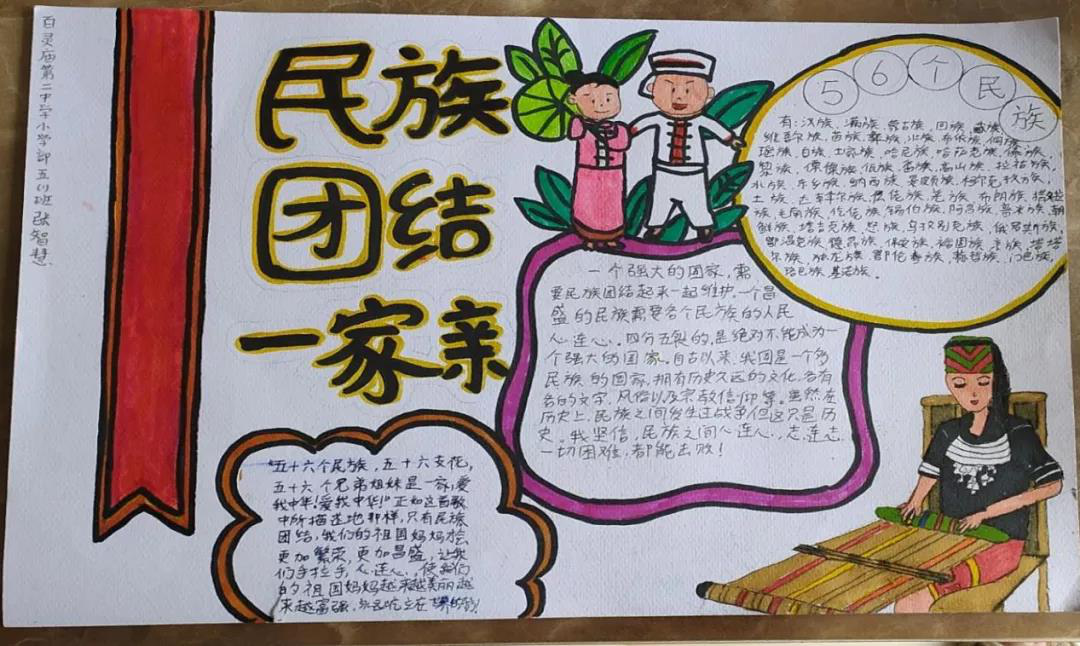 百灵庙第二中学小学部五(1)班 张智慧
民族
团结
一家亲
56个民族
有:汉族、满族、蒙古族、回族、藏族、
维吾尔族、苗族、彝族、壮族、布依族、侗族、
瑶族、白族、土家族、哈尼族、哈萨克族、傣族、
黎族、傈僳族、佤族、畲族、高山族、拉祜族、
水族、东乡族、纳西族、景颇族、柯尔克孜族、
土族、达斡尔族、仫佬族、羌族、布朗族、撒拉
族、毛南族、仡佬族、锡伯族、阿昌族、普米族、朝
鲜族、塔吉克族、怒族、乌孜别克族、俄罗斯族、
鄂温克族、德昂族、保安族、裕固族、京族、塔塔
尔族、独龙族、鄂伦春族、赫哲族、门巴族、
珞巴族、基诺族。
一个强大的国家,需
要民族团结起来一起维护。一个昌
盛的民族需要各个民族的人民
心连心。四分五裂的,是绝对不能成为一
个强大的国家。自古以来,我国是一个多
民族的国家,拥有历史久远的文化,各有
各的文字,风俗以及宗教信仰等。虽然在
历史上,民族之间发生过战争但这只是历
史。我坚信,民族之间心连心,志连志,
一切困难,都能击败!
“五十六个民族,五十六支花,
五十六个兄弟姐妹是一家,爱
我中华!爱我中华!”正如这首歌
中所描述地那样,只有民族
团结,我们的祖国妈妈才会
更加繁荣,更加昌盛,让我
们手拉手,心连心,使我们
的祖国妈妈越来越美丽越
来越富强,永远屹立在